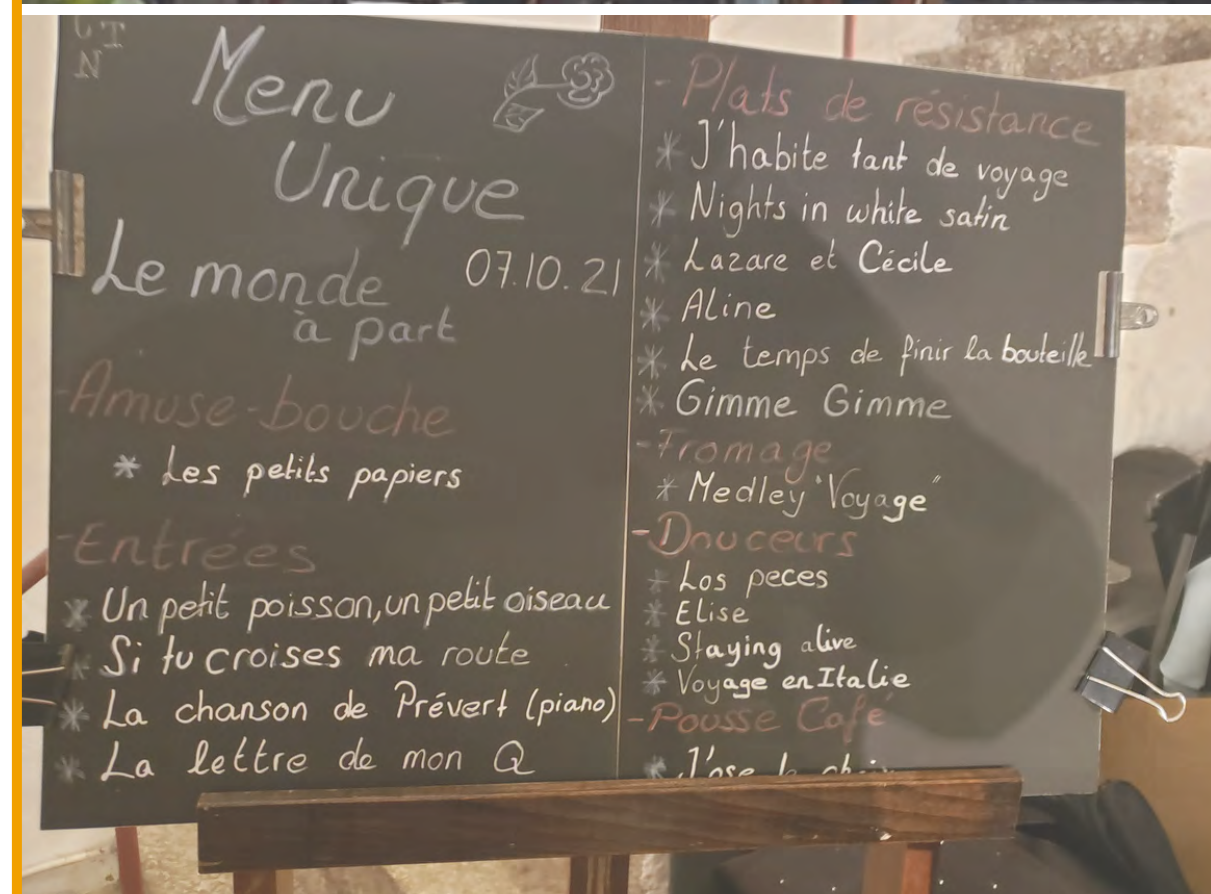 Menu
Unique
Le monde
à part
07.10.21
-Amuse-bouche
* Les petits papiers
-Entrées
* Un petit poisson, un petit oiseau
* Si tu croises ma route
* La chanson de Prévert (piano)
* La lettre de mon Q
-Plats de résistance
* J'habite tant de voyage
* Nights in white satin
* Lazare et Cécile
* Aline
* Le temps de finir la bouteille
* Gimme Gimme
-Fromage
* Medley "Voyage"
-Douceurs
* Los peces
* Elise
* Staying alive
* Voyage en Italie
-Pousse Café
* J'ose